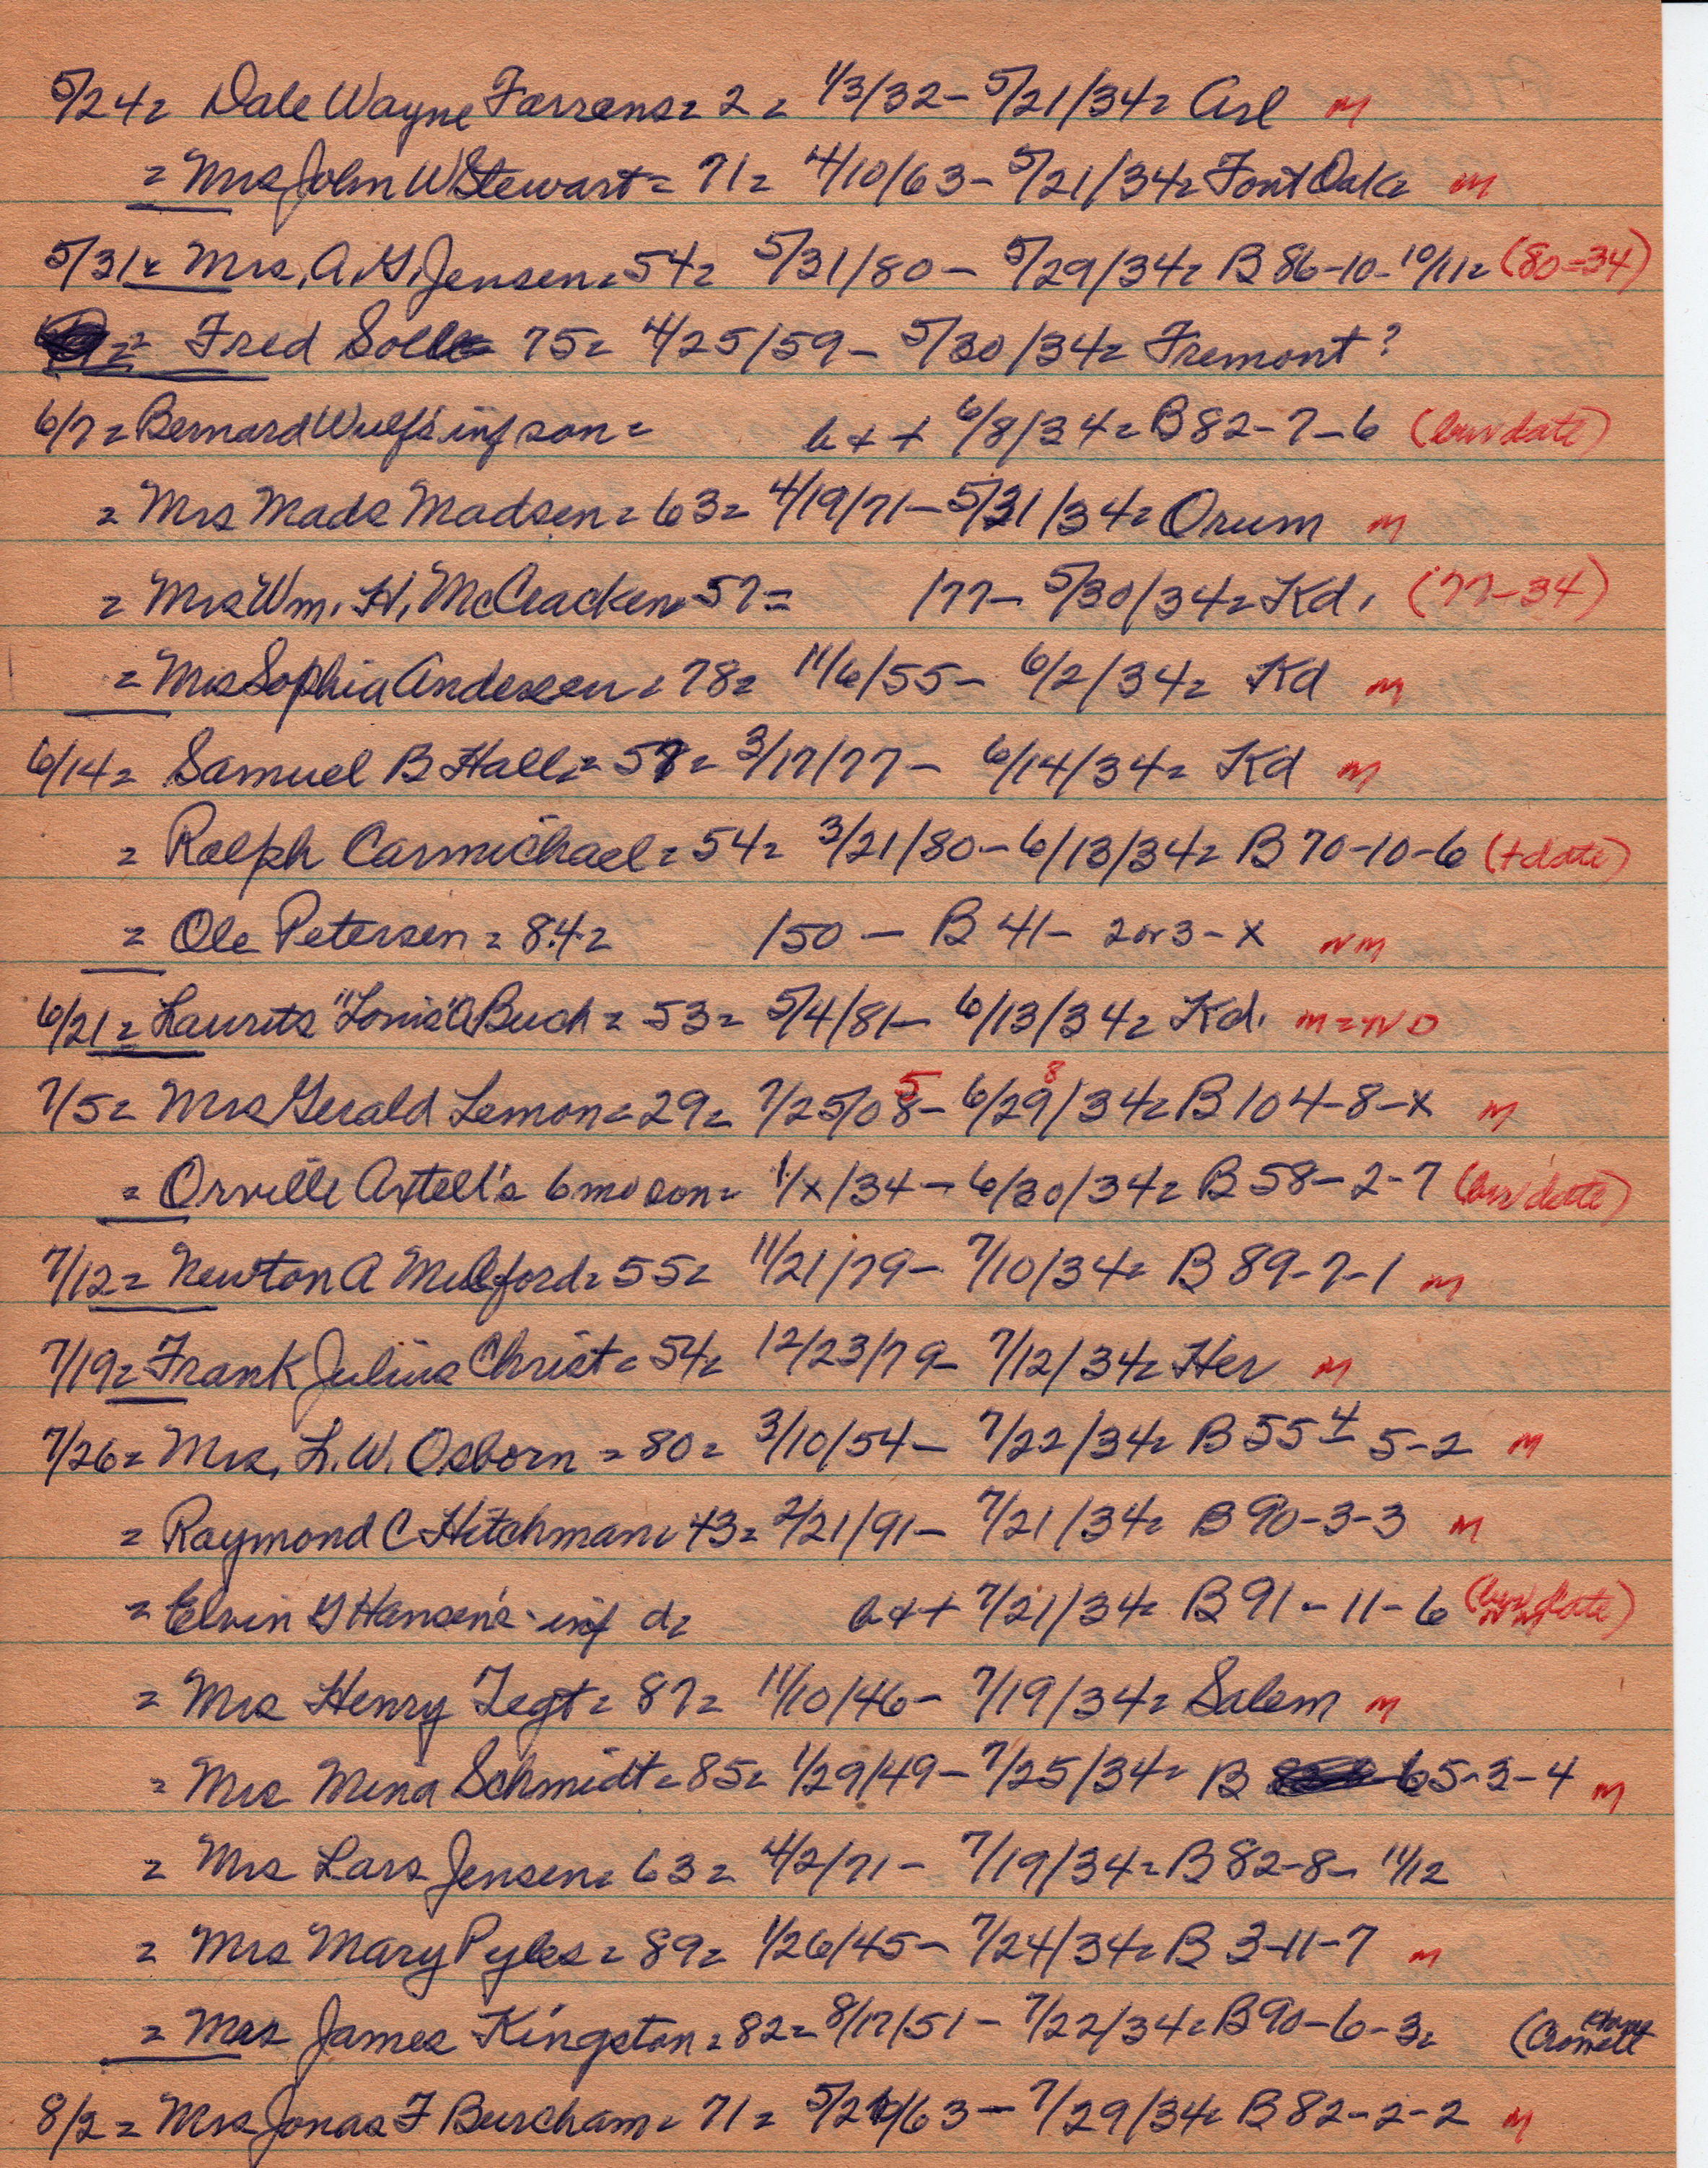 5/24= Dale Wayne Farrens= 2= 1/3/32- 5/21/34= Arl M
= Mrs John W Stewart= 71= 4/10/63- 5/21/34= FontOak= M
5/31= Mrs. A. G. Jensen= 54= 5/31/80- 5/29/34= B 86-10-10/11= (80=34)
= Fred Soll= 75= 4/25/59- 5/30/34= Fremont?
6/7= Bernard Wulf's inf son= b++ 6/8/34= B 82-7-6 (bur date)
= Mrs Mads Madsen= 63= 4/19/71- 5/31/34= Orum M
= Mrs Wm. H. McCracken 57= /77- 5/30/34= Kd. (77-34)
= Mrs Sophia Andersen= 78= 11/6/55- 6/2/34= Kd M
6/14= Samuel B Hall= 57= 3/17/77- 6/14/34= Kd M
= Ralph Carmichael= 54= 3/21/80- 6/13/34= B 70-10-6 (+date)
= Ole Petersen= 84= /50- B 41- 2or3-x NM
6/21= Laurits "Louis" Buch= 53= 5/4/81- 6/13/34= Kd. M=ND
7/5= Mrs Gerald Lemon= 29= 7/25/08 5- 6/29 8/34= B 104-8-x M
= Orville Axtell's 6mo son= 1/x/34- 6/30/34= B 58-2-7 (bur date)
7/12= Newton A Milford= 55= 11/21/79- 7/10/34= B 89-7-1 M
7/19= Frank Julius Christ= 54= 12/23/79- 7/12/34= Her M
7/26= Mrs. L. W. Osborn= 80= 3/10/54- 7/22/34= B 55 4 5-2 M
= Raymond C Hitchman= 43= 2/21/91- 7/21/34= B 90-3-3 M
= Elvin G Hansen's inf d= b++ 7/21/34= B 91-11-6 (bur date) NM
= Mrs Henry Tegt= 87= 11/10/46- 7/19/34= Salem M
= Mrs Mina Schmidt= 85= 1/29/49- 7/25/34= B 65-3-4 M
= Mrs Lars Jensen= 63= 4/2/71- 7/19/34= B 82-8-11/12
= Mrs Mary Pyles= 89= 1/26/45- 7/24/34= B 3-11-7 M
= Mrs James Kingston= 82= 8/17/51- 7/22/34= B 90-6-3=
8/2= Mrs Jonas F Burcham= 71= 5/26/63- 7/29/34= B 82-2-2 M